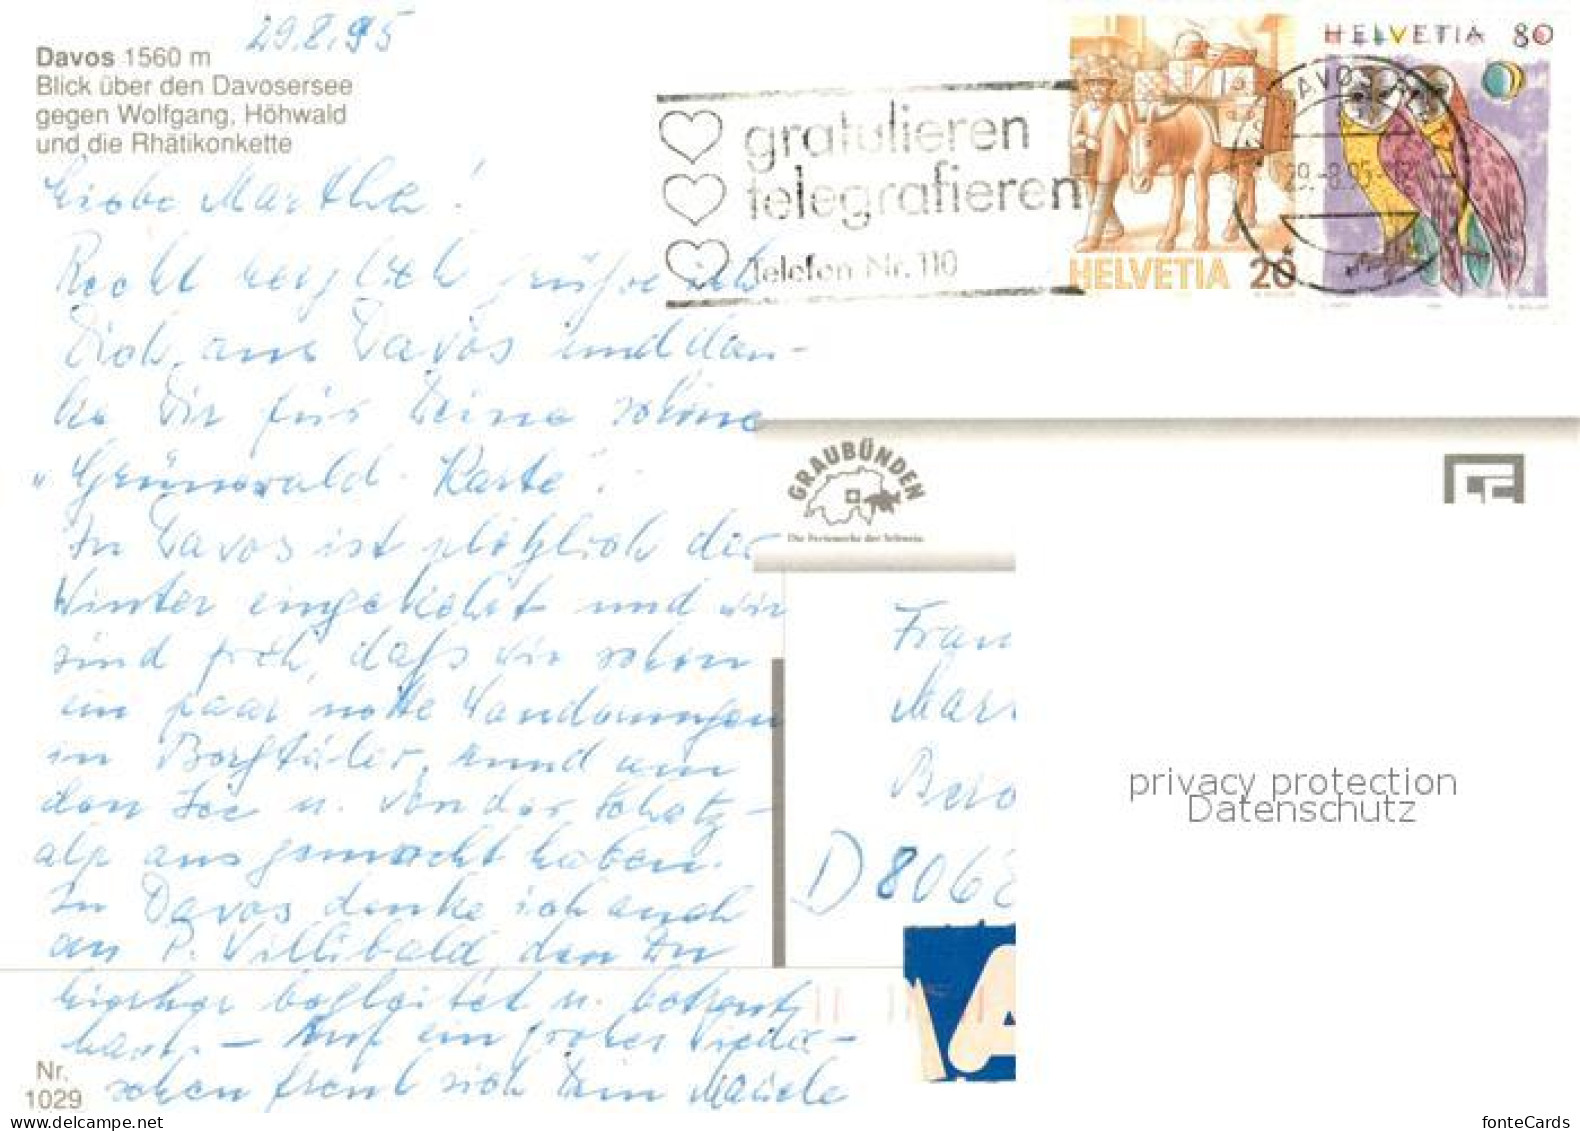 29.8.95
Davos 1560 m
Blick über den Davosersee
gegen Wolfgang, Höhwald
und die Rhätikonkette
HELVETIA 80
gratulieren
telegrafieren
Telefon Nr. 110
DAVOS
29.-8.95-
HELVETIA 20
Liebe Martha!
Recht herzlich grüße ich
Dich aus Davos und dan-
ke Dir für Deine schöne
„Grünwald-Karte".
In Davos ist plötzlich der
Winter eingekehrt und wir
sind froh, daß wir schon
ein paar nette Wanderungen
in Bergtäler, rund um
den See u. von der Schatz-
alp aus gemacht haben.
In Davos denke ich auch
an P. Willibald, den Du
hierher begleitet u. betreut
hast. – Auf ein frohes Wieder-
sehen freut sich Dein
GRAUBÜNDEN
Die Ferienecke der Schweiz.
D 8068
privacy protection
Datenschutz
Nr.
1029
www.ansichtskarten-center.de
fonteCards